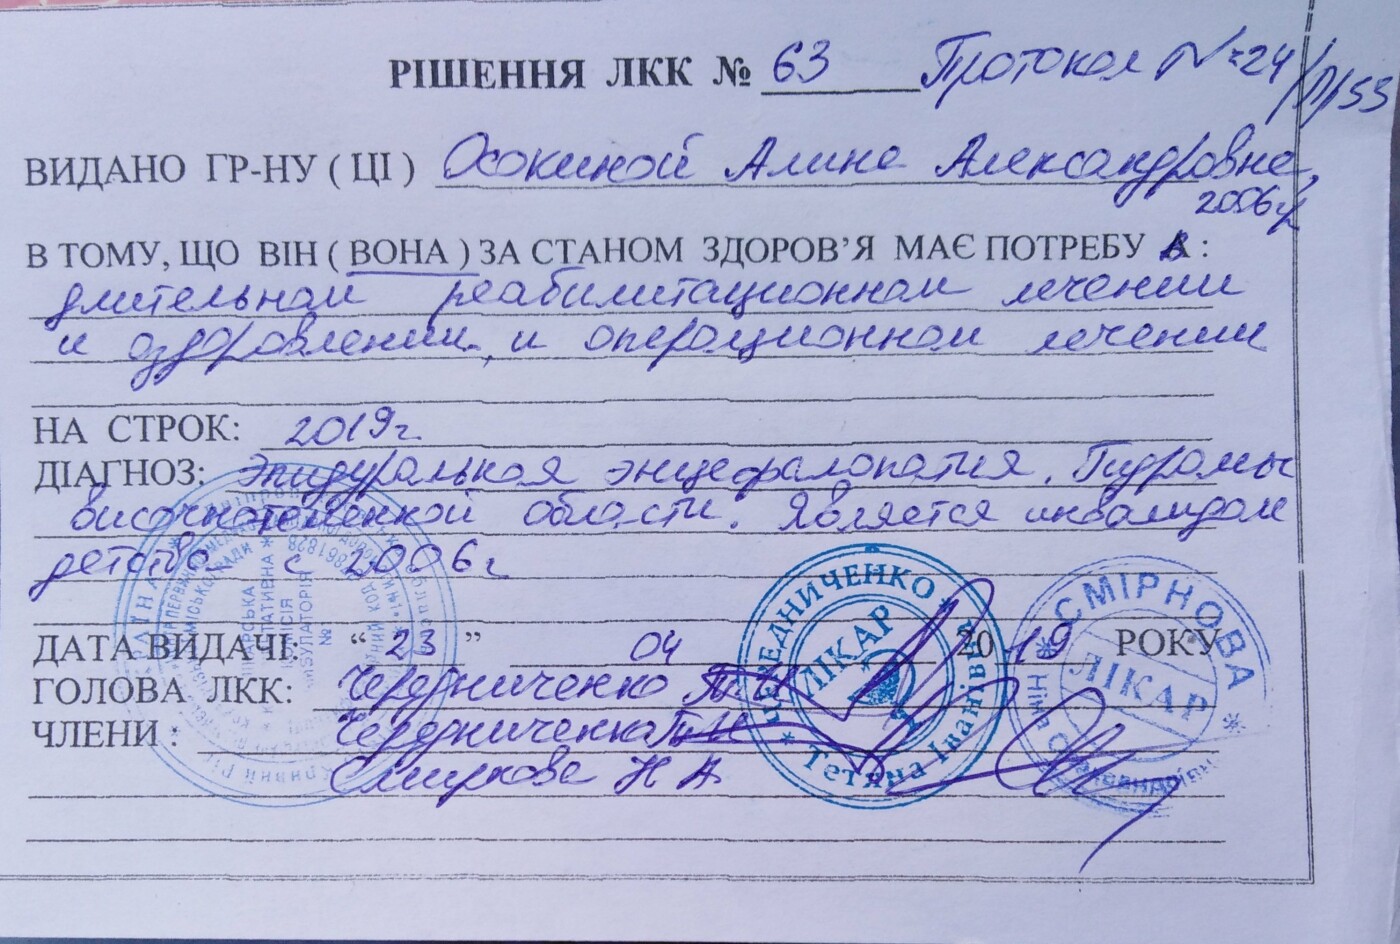 РІШЕННЯ ЛКК № 63 Протокол №24/
ВИДАНО ГР-НУ ( ЦІ ) Осокиной Алине Александровне,
2006г
В ТОМУ, ЩО ВІН ( ВОНА ) ЗА СТАНОМ ЗДОРОВ’Я МАЄ ПОТРЕБУ В :
длительном реабилитационном лечении
и оздоровлении, и операционном лечении
НА СТРОК: 2019г.
ДІАГНОЗ: энцефалопатия.
области. Является инвалидом
детства с 2006г
ДАТА ВИДАЧІ: “ 23 ” 04 2019 РОКУ
ГОЛОВА ЛКК: Чередниченко Т.И
ЧЛЕНИ : Чередниченко Т.И
Смирнова Н А
ЧЕРЕДНИЧЕНКО
Тетяна Іванівна
ЛІКАР
СМІРНОВА
ЛІКАР